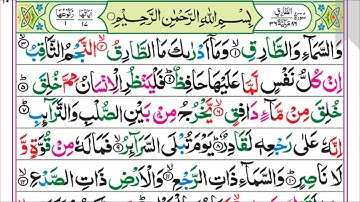 سورة الطارق
بسم الله الرحمن الرحيم
وَالسَّمَآءِ وَالطَّارِقِ ۝١ وَمَآ اَدْرٰىكَ مَا الطَّارِقُ ۝٢ النَّجْمُ الثَّاقِبُ ۝٣
اِنْ كُلُّ نَفْسٍ لَّمَّا عَلَيْهَا حَافِظٌ ۝٤ فَلْيَنْظُرِ الْاِنْسَانُ مِمَّ خُلِقَ ۝٥
خُلِقَ مِنْ مَّآءٍ دَافِقٍ ۝٦ يَّخْرُجُ مِنْۢ بَيْنِ الصُّلْبِ وَالتَّرَآئِبِ ۝٧
اِنَّهٗ عَلٰى رَجْعِهٖ لَقَادِرٌ ۝٨ يَوْمَ تُبْلَى السَّرَآئِرُ ۝٩ فَمَا لَهٗ مِنْ قُوَّةٍ وَّ
لَا نَاصِرٍ ۝١٠ وَالسَّمَآءِ ذَاتِ الرَّجْعِ ۝١١ وَالْاَرْضِ ذَاتِ الصَّدْعِ ۝١٢